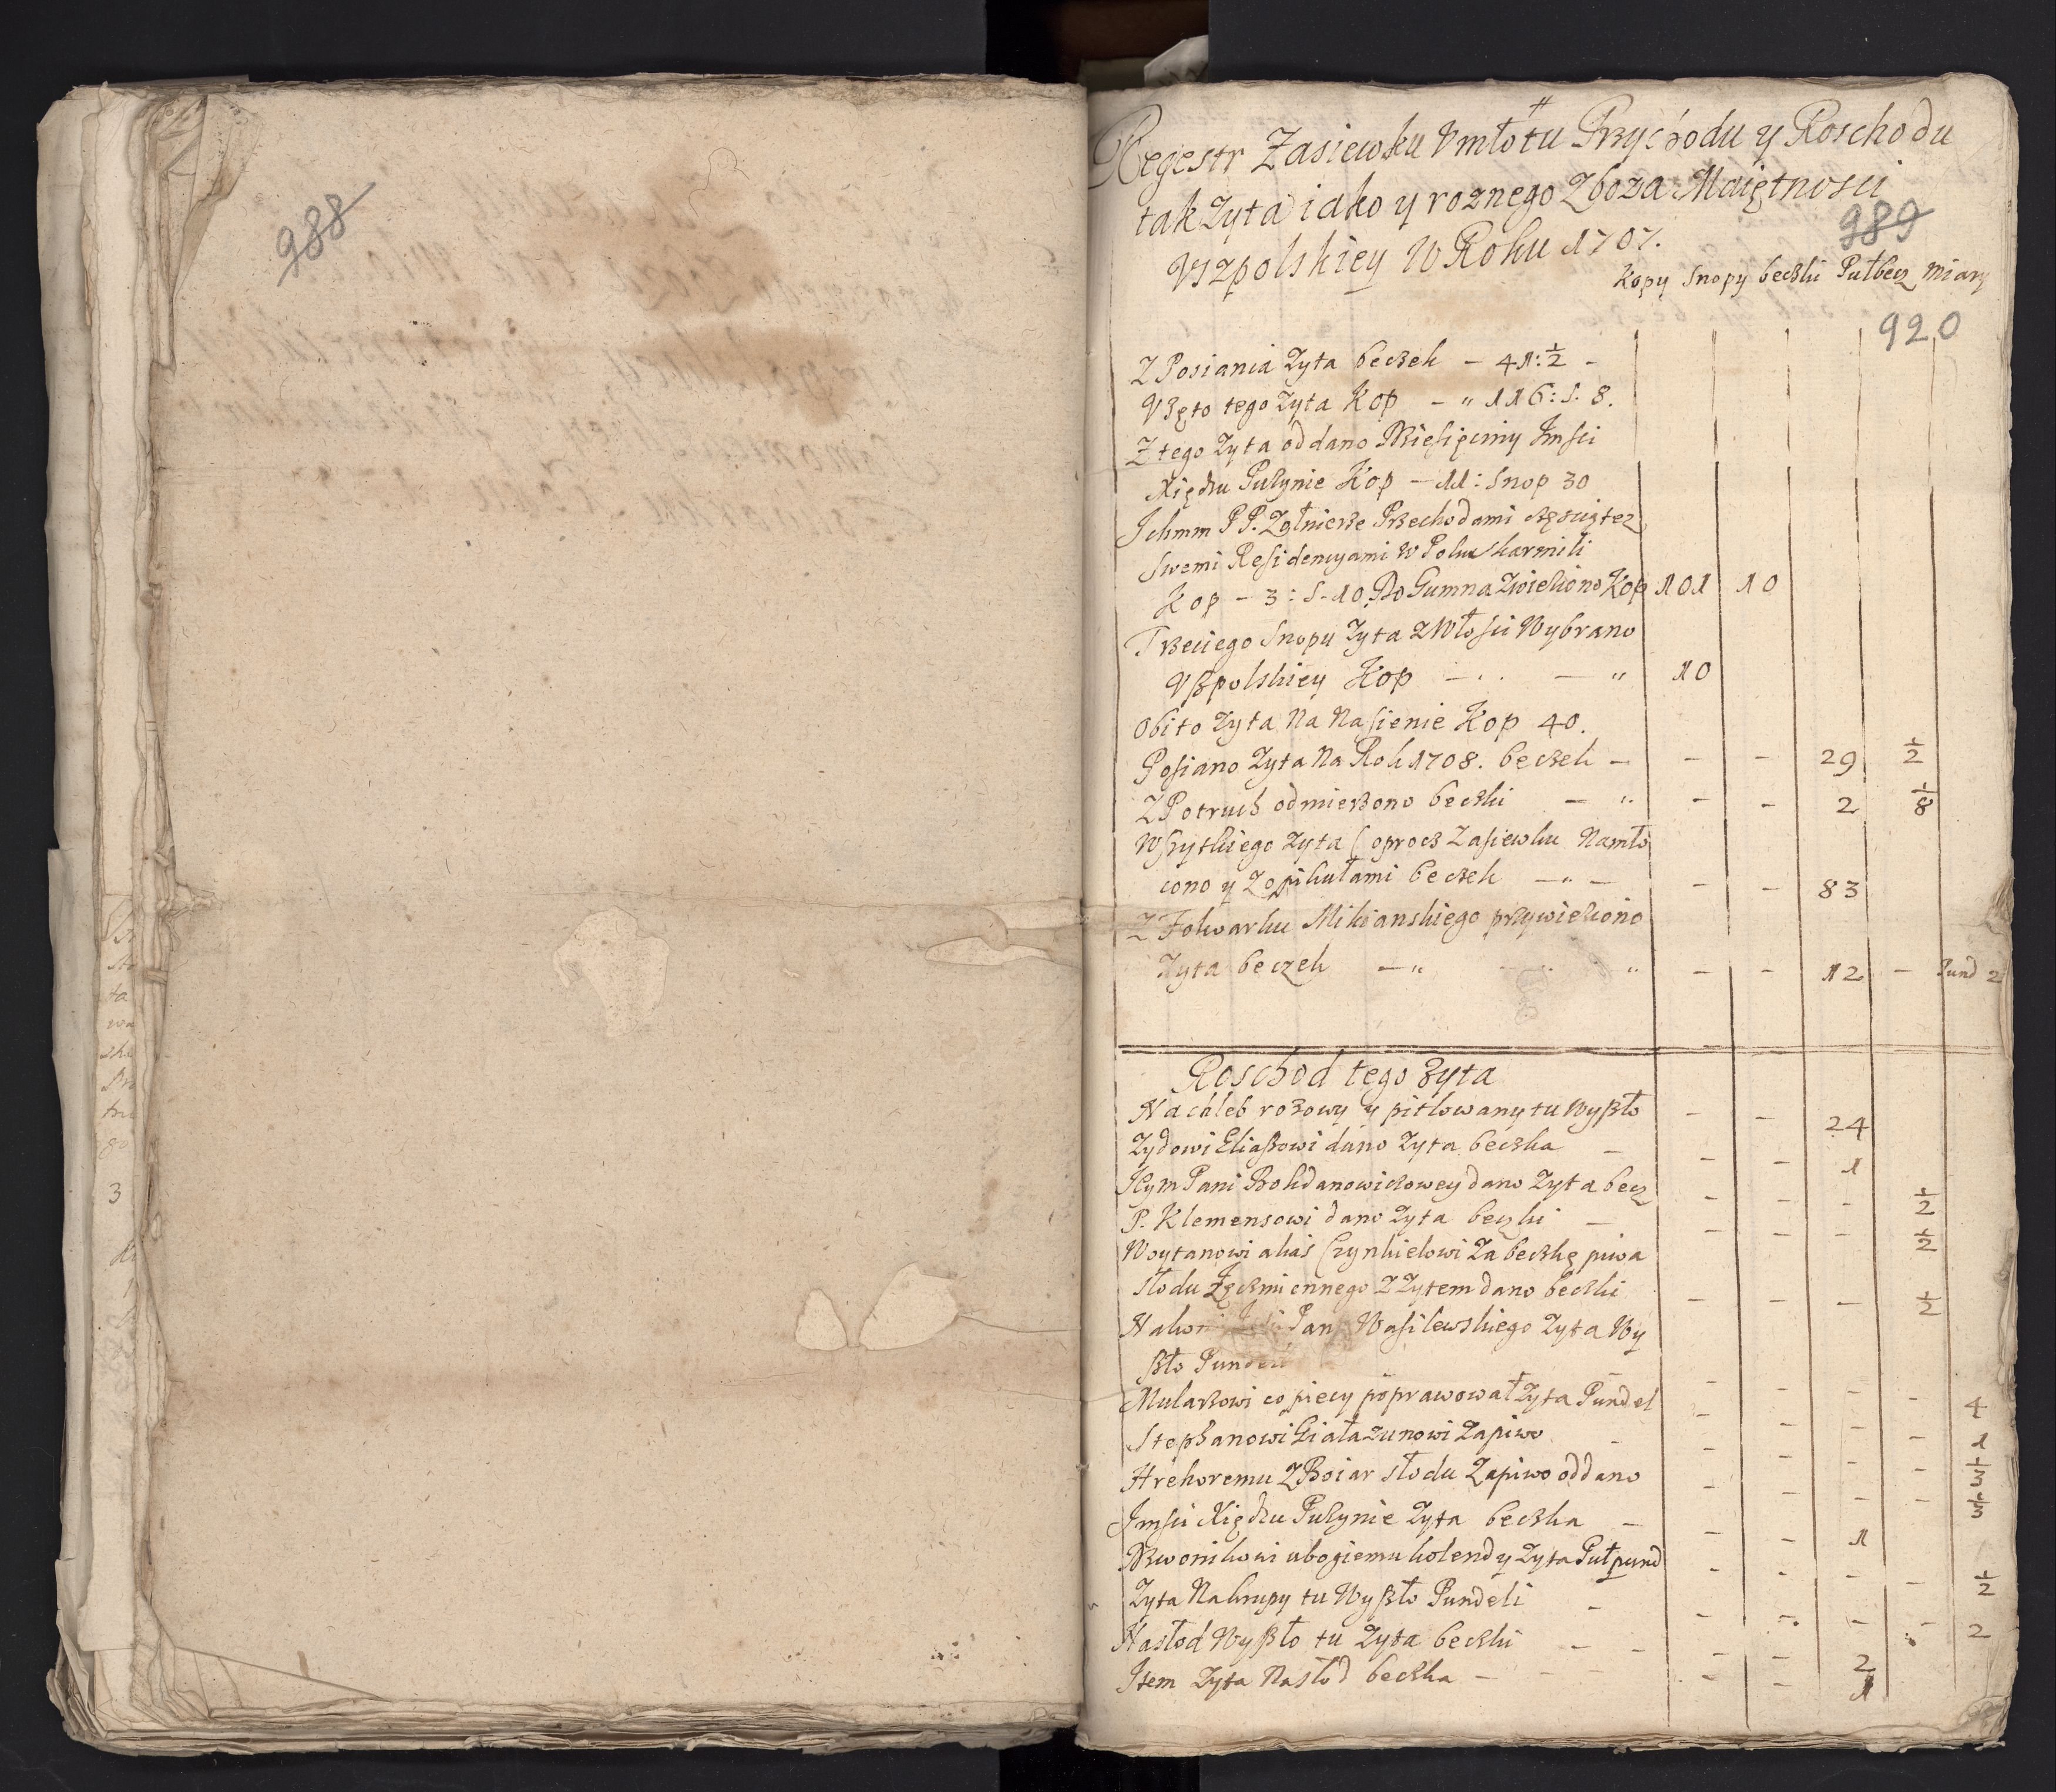 988
Regestr Zasiewku Vmłotu Przychodu y Roschodu
tak Zyta iako y roznego Zboza Maiętnosci
989
Vszpolskiey W Roku 1707.
Kopy Snopy beczki Pułbecz Miary
920
Z Posiania Zyta beczek - 41: 1/2 -
Vżęto tego Zyta Kop - " 116: S: 8.
Z tego Zyta oddano Dziesięciny Jmsci
Xiędzu Puzynie Kop - 11: Snop 30
Ichmm PP. Zołnierze Przechodami częscią tez
Swemi Residencyami w Polu skarmili
Kop - 3: S-10. Do Gumna Zwieziono Kop 101 10
Trzeciego Snopu Zyta z Włosci Wybrano
Vszpolskiey Kop - . . - " 10
Obito Zyta Na Nasienie Kop 40.
Posiano Zyta Na Rok 1708. beczek - - - 29 1/2
Z Potruch odmierzono beczki - " - - 2 1/8
Wszytkiego Zyta (oprocz Zasiewku Namło
cono y Zopikułami beczek - " - - - 83
Z Folwarku Mikianskiego przywieziono
Zyta beczek - " " " - - 12 - Pund 2
Roschod tego Zyta
Na chleb rozowy y pitlowany tu Wyszło - - 24
Zydowi Eliaszowi dano Zyta beczka - - - 1
Jeym Pani Bohdanowiczowey dano Zyta becz - - - 1/2
P. Klemensowi dano Zyta beczki - - - - 1/2
Woytanowi alias Czynkielowi Za beczkę piwa
słodu Jęczmiennego Z Zytem dano beczki - - - 1/2
Pan Wasilewskiego Zyta Wy
szło - - - - 4
Mularzowi co piecy poprawował Zyta Pundel - - - - 1
Stephanowi Giałazunowi Zapiwo - - - - - 1/3
Hrehoremu Z Boiar słodu Zapiwo oddano - - - - 1/3
Jmsci Xiędzu Puzynie Zyta beczka - - - 1
Dzwonikowi ubogiemu kolendy Zyta Puł pund - - - - 1/2
Zyta Na krupy tu Wyszło Pundeli - - - - - 2
Nasłod Wyszło tu Zyta beczki - - - - 2
Item Zyta Nasłod beczka - - - - 1